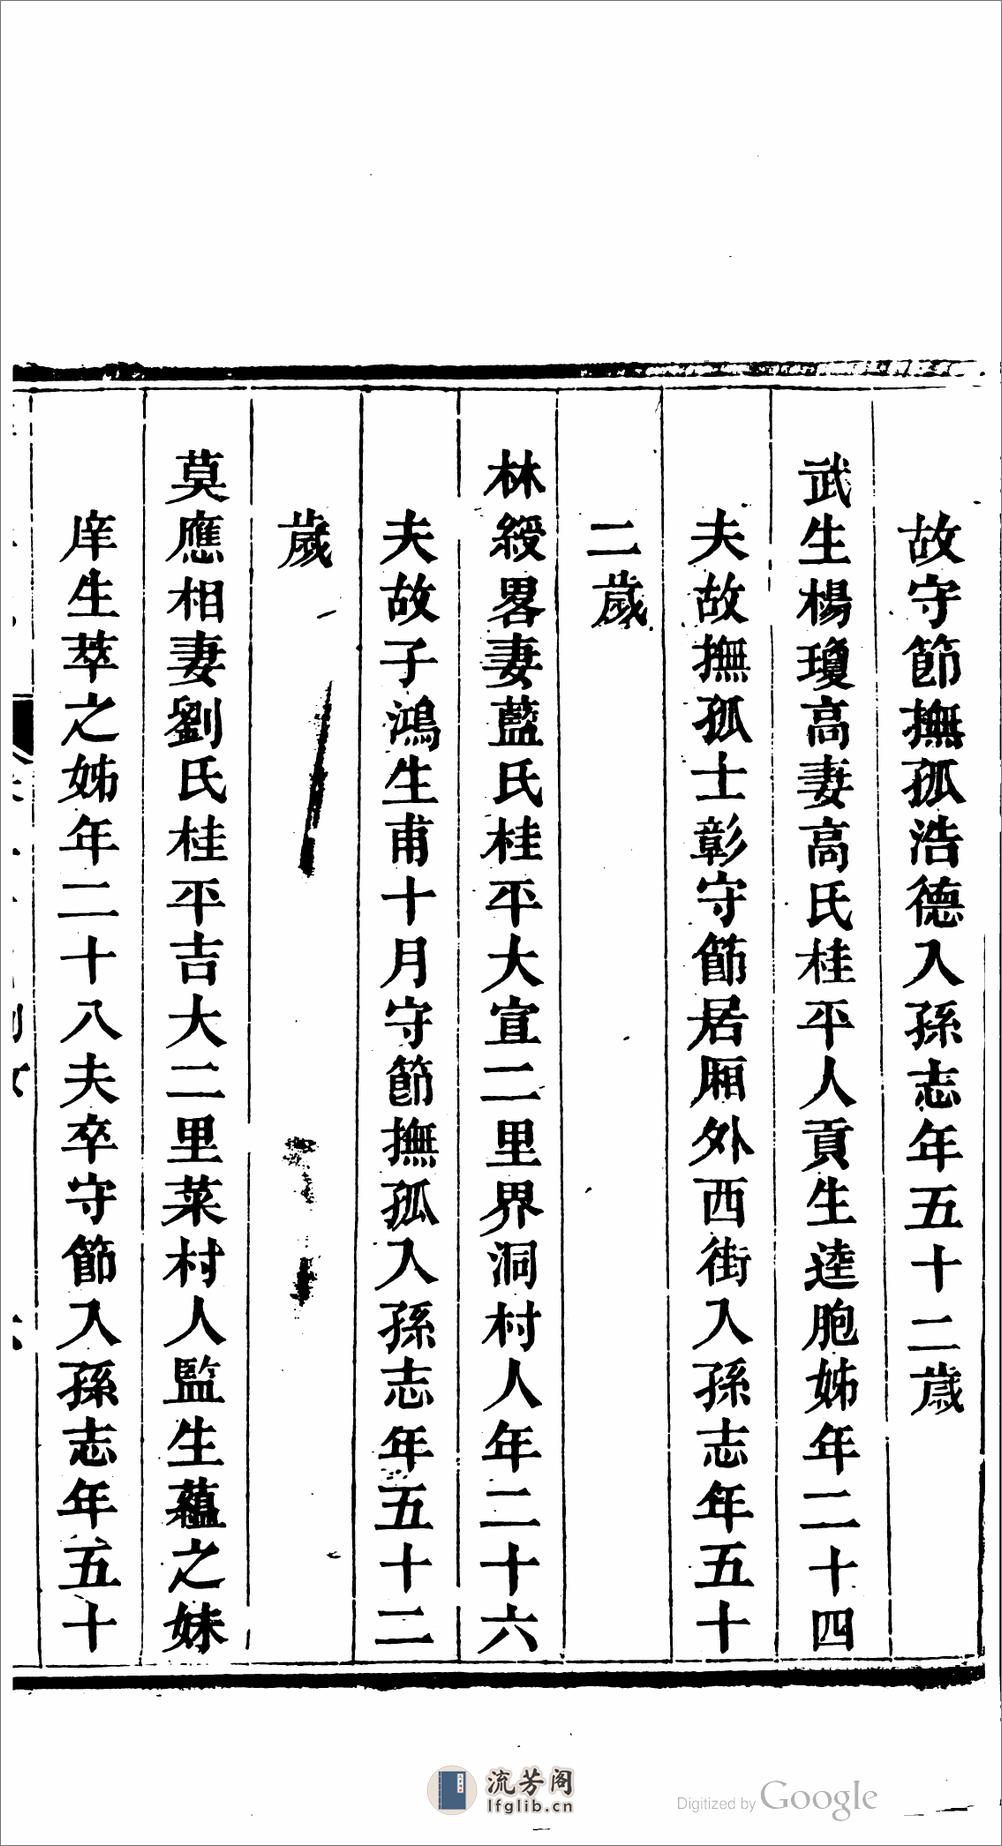 故守節撫孤浩德入孫志年五十二歲
武生楊瓊高妻高氏桂平人貢生逵胞姊年二十四
夫故撫孤士彰守節居厢外西街入孫志年五十
二歲
林綬畧妻藍氏桂平大宣二里界洞村人年二十六
夫故子鴻生甫十月守節撫孤入孫志年五十二
歲
莫應相妻劉氏桂平吉大二里菜村人監生蘊之妹
庠生萃之姊年二十八夫卒守節入孫志年五十
流芳阁
lfglib.cn
Digitized by Google